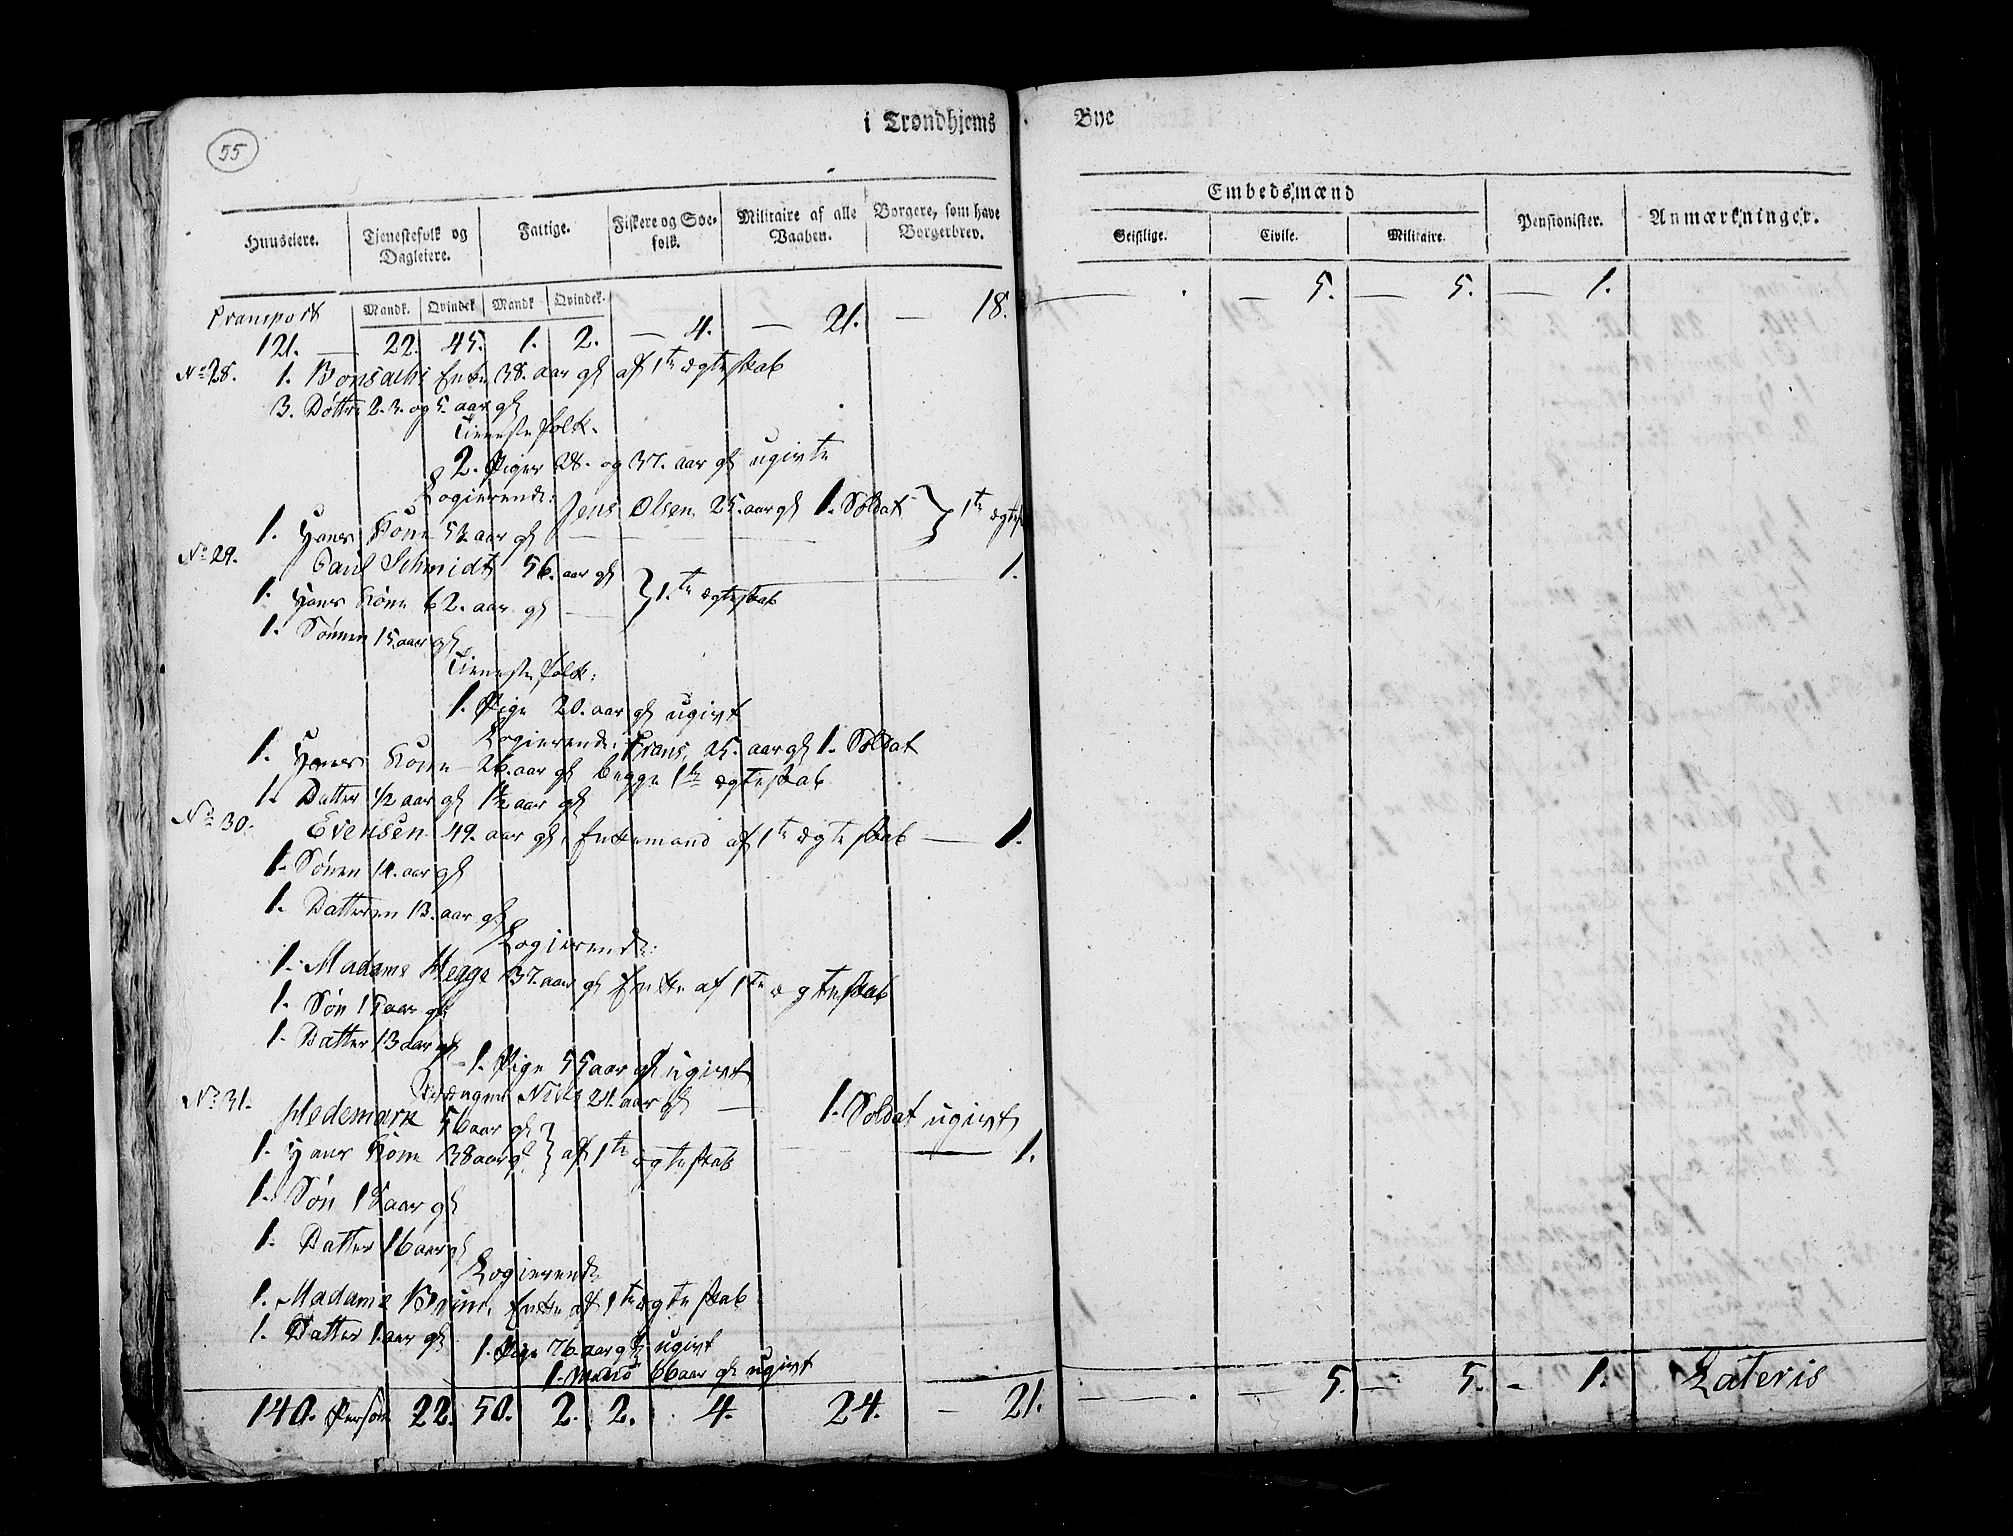 55
i Trondhjems Bye
Embedsmænd
Huuseiere. Tjenestefolk og Dagleiere. Fattige. Fiskere og Søefolk. Militaire af alle Vaaben. Borgere, som have Borgerbrev. Geistlige. Civile. Militaire. Pensionister. Anmærkninger.
Mandk. Qvindek Mandk Qvindek.
Transport
121. — 22. 45. 1. 2. — 4. — 21. — 18. — . — 5. — 5. — 1.
No 28. 1. Bonsachs Enke 38. aar gl af 1te ægteskab
3. Døttre 2. 3. og 5. aar gl
Tieneste folk.
2. Piger 28. og 37. aar gl ugivte
Logierende: Jens Olsen 25. aar gl 1. Soldat } 1te ægtesk
1. Hans Kone 52 aar gl
No 29. Paul Schmidt 56. aar gl } 1.te ægteskab 1.
1. Hans Kone 62. aar gl
1. Sönnen 15 aar gl
Tieneste folk:
1. Pige 20. aar gl ugivt
Logierende: Frans, 25. aar gl 1. Soldat
1. Hans Kone 26. aar gl begge 1te ægteskab
1. Datter 1/2 aar gl 1½ aar gl
No 30. Evensen 49. aar gl, Enkemand af 1te ægteskab — 1.
1. Sönen 14. aar gl
1. Datteren 13. aar gl
Logierende:
1. Madame Hegge 37. aar gl Enke af 1te ægteskab
1. Sön 15 aar gl
1. Datter 13 aar gl
1. Pige 55 aar gl ugivt
Niels 21. aar gl — 1. Soldat ugivt
No 31. Hedemark 56 aar gl } af 1te ægteskab — 1.
1. Hans Kone 38 aar gl
1. Sön 18 aar gl
1. Datter 16 aar gl
Logierende
1. Madame Brun, Enke af 1te ægteskab
1. Datter 1. aar gl
1. Pige 76. aar gl ugivt
1. Mand 66 aar gl ugivt
140. Person 22. 50. 2. 2. 4. 24. — 21. — . — 5. — 5. - 1. Lateris